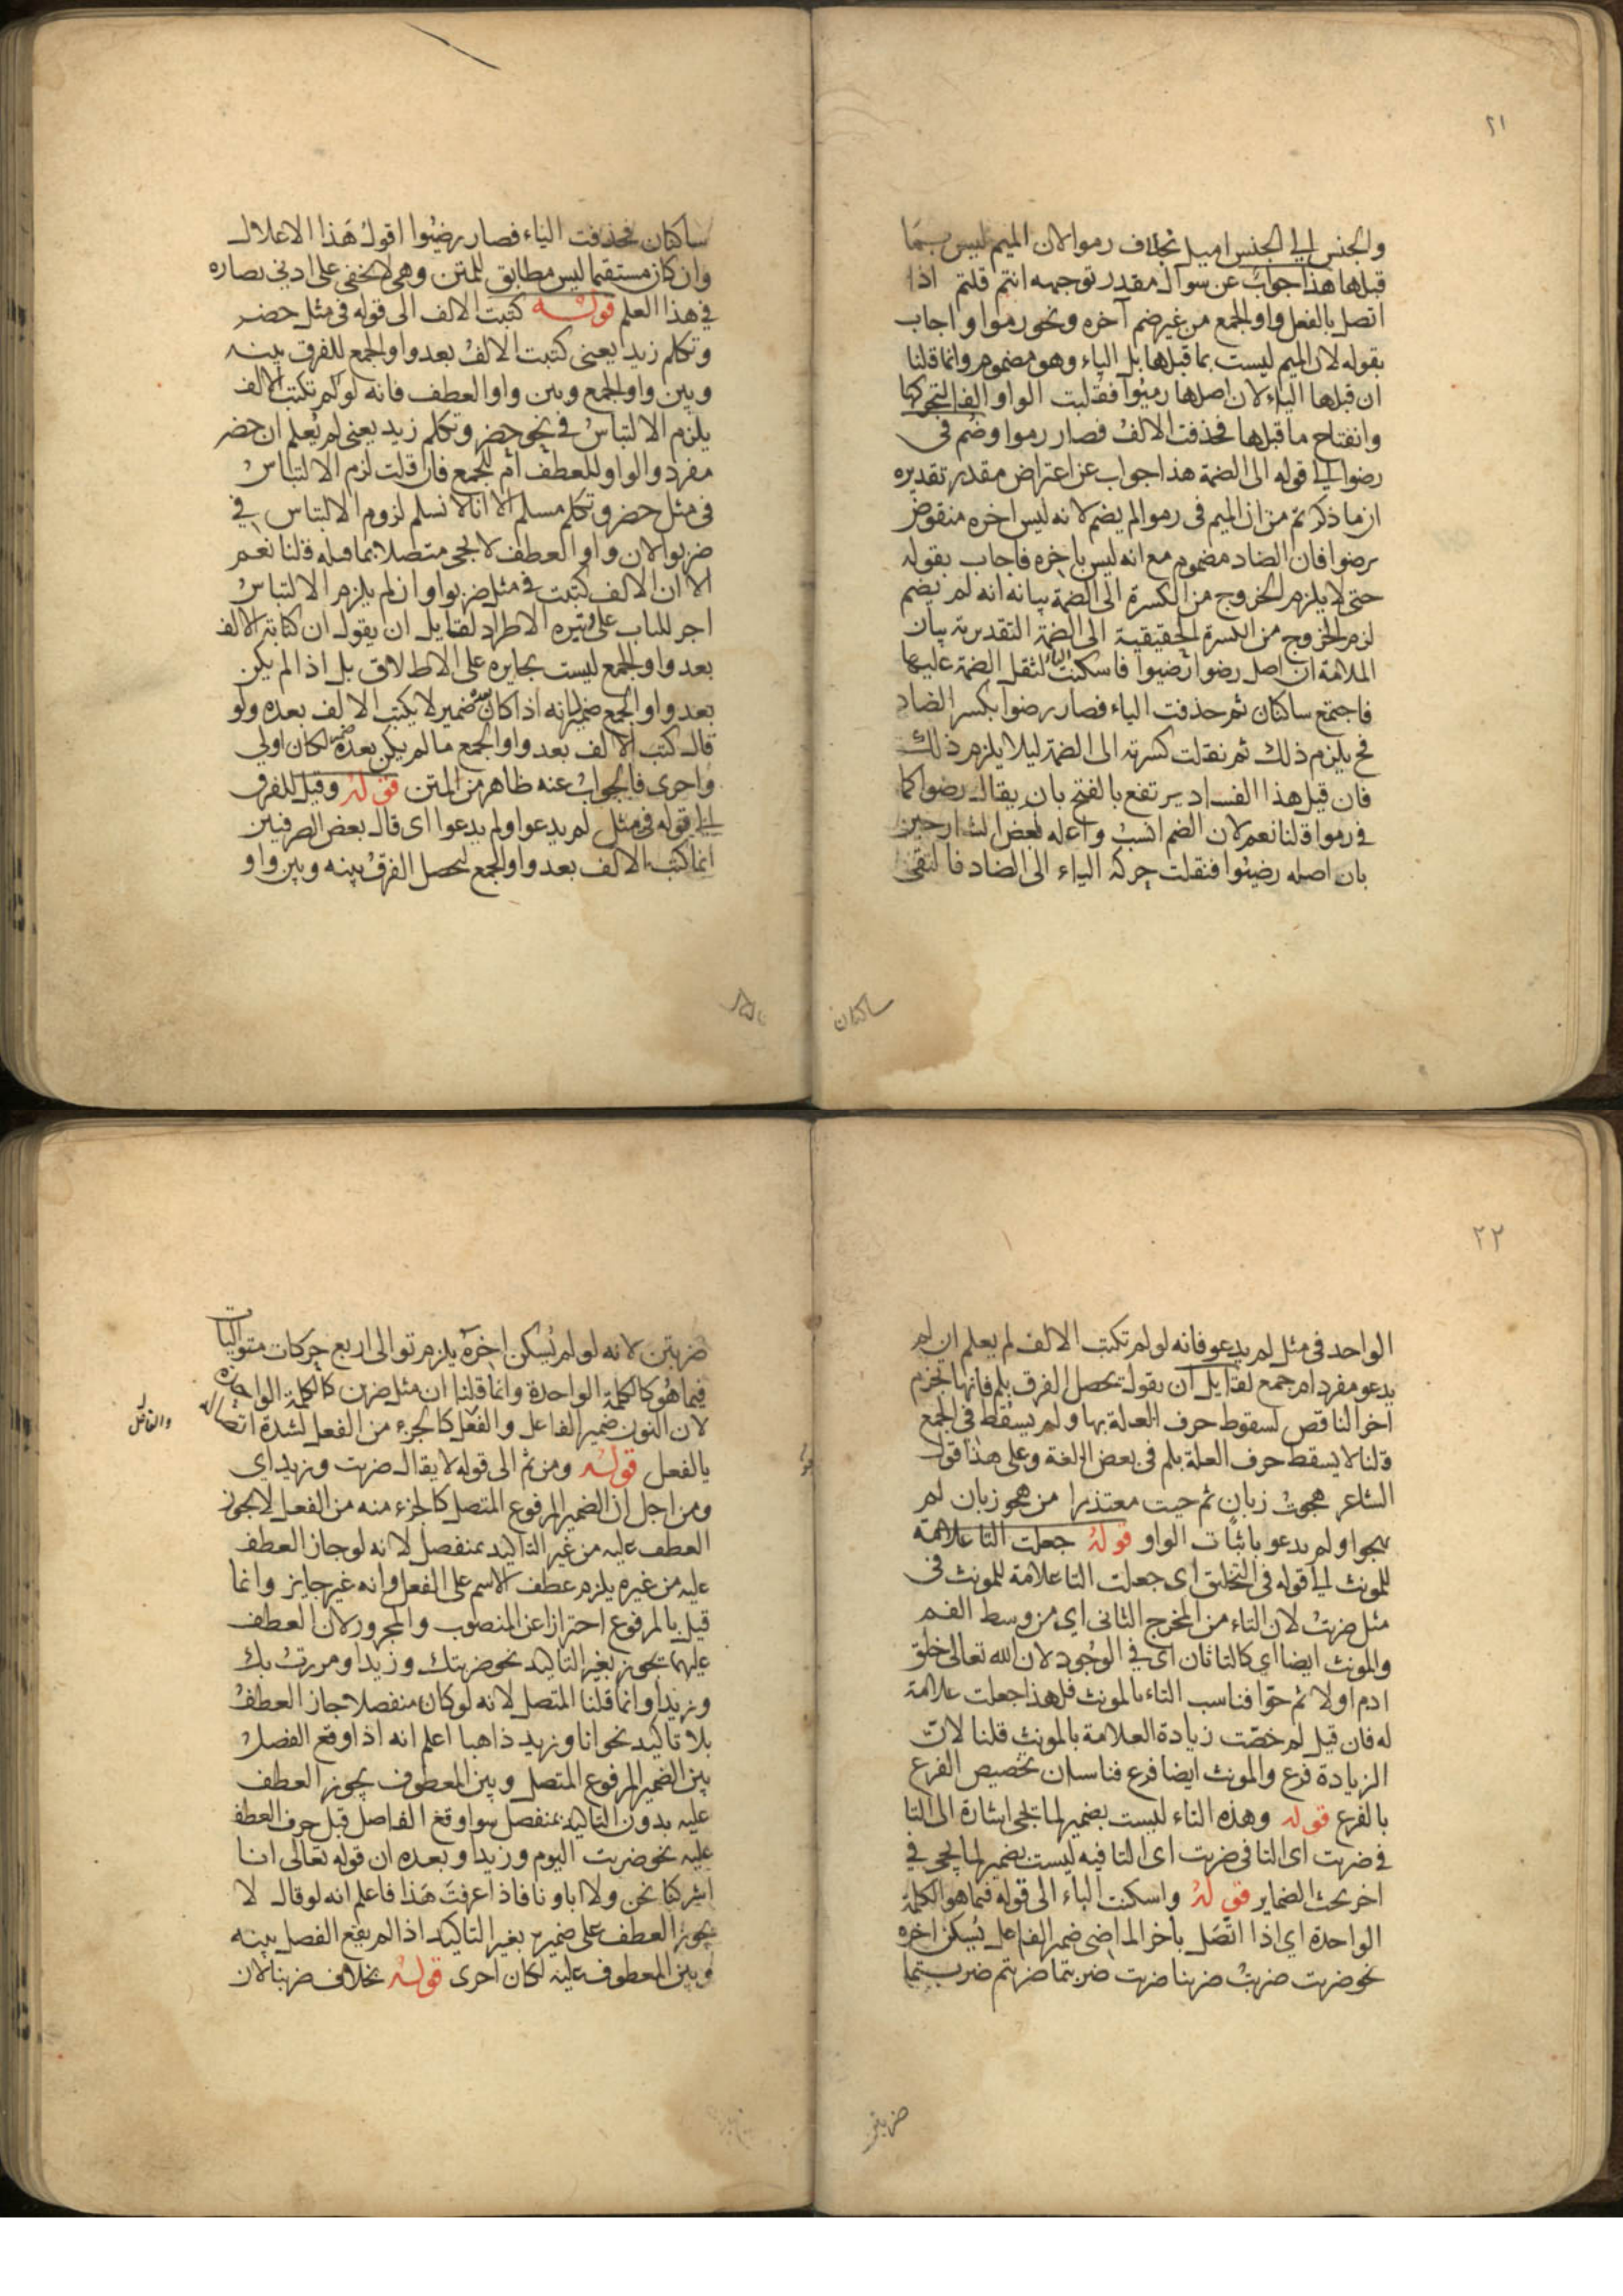 ٢١
والجنس الى الجنس اميل بخلاف رموا لان الميم ليس بما
قبلها هذا جواب عن سوال مقدر توجيهه انتم قلتم اذا
اتصل بالفعل واو الجمع من غير ضم آخره ونحو رموا واجاب
بقوله لان الميم ليست بما قبلها بل الياء وهو مضموم وانما قلنا
ان قبلها الياء لان اصلها رميوا فقلبت الواو الفا لتحركها
وانفتاح ما قبلها فحذفت الالف فصار رموا وضم فى
رضوا الى قوله الى الضمة هذا جواب عن اعتراض مقدر تقديره
ان ما ذكرتم من ان الميم فى رموا لم يضم لانه ليس اخره منقوض
برضوا فان الضاد مضموم مع انه ليس باخره فاجاب بقوله
حتى لا يلزم الخروج من الكسرة الى الضمة بيانه انه لم يضم
لزم الخروج من الكسرة الحقيقية الى الضمة التقديرية بيان
الملازمة ان اصل رضوا رضيوا فاسكنت الياء لثقل الضمة عليها
فاجتمع ساكنان ثم حذفت الياء فصار رضوا بكسر الضاد
فح يلزم ذلك ثم نقلت كسرته الى الضمة ليلا يلزم ذلك
فان قيل هذا الفساد يرتفع بالفتح بان يقال رضوا كما
فى رموا قلنا نعم لان الضم انسب واعله بعض الشارحين
بان اصله رضيوا فنقلت حركة الياء الى الضاد فالتقى
ساكنان
ساكنان فحذفت الياء فصار رضيوا اقول هذا الاعلال
وان كان مستقيما ليس مطابق للمتن وهى لا يخفى على ادنى بصاره
فى هذا العلم قوله كتبت الالف الى قوله فى مثل حضر
وتكلم زيد يعنى كتبت الالف بعد واو الجمع للفرق بينه
وبين واو الجمع وبين واو العطف فانه لو لم تكتب الالف
يلزم الالتباس فى نحو حضر وتكلم زيد يعنى لم يعلم ان حضر
مفرد والواو للعطف ام للجمع فان قلت لزم الالتباس
فى مثل حضر وتكلم مسلم الا انا لا نسلم لزوم الالتباس فى
ضربوا لان واو العطف لا يجى متصلا بما قبله قلنا نعم
الا ان الالف كتبت فى مثل ضربوا وان لم يلزم الالتباس
اجر للباب على وتيره الاطراد لقايل ان يقول ان كتابة الالف
بعد واو الجمع ليست بجايره على الاطلاق بل اذا لم يكن
بعد واو الجمع ضمير لانه اذا كان ضمير لا يكتب الالف بعده ولو
قال كتب الالف بعد واو الجمع ما لم يكن بعده ضمير لكان اولى
واحرى فالجواب عنه ظاهر من المتن قوله وقيل للفرق
الى قوله فى مثل لم يدعوا ولم يدعوا اى قال بعض الصرفيين
انما كتب الالف بعد واو الجمع ليحصل الفرق بينه وبين واو
٢٢
الواحد فى مثل لم يدعو فانه لو لم تكتب الالف لم يعلم ان لم
يدعو مفرد ام جمع لقايل ان يقول يحصل الفرق بلم فانها تجزم
اخر الناقص لسقوط حرف العلة بها ولم يسقط فى الجمع
قلنا لا يسقط حرف العلة بلم فى بعض اللغة وعلى هذا قول
الشاعر هجوت زبان ثم جيت معتذرا من هجو زبان لم
يهجوا ولم يدعو باثبات الواو قوله جعلت التا علامة
للمونث الى قوله فى التخليق اى جعلت التا علامة للمونث فى
مثل ضربت لان التاء من المخرج الثانى اى من وسط الفم
والمونث ايضا اى كالتا ثان اى فى الوجود لان الله تعالى خلق
ادم اولا ثم حوا فناسب التاء بالمونث فلهذا جعلت علامة
له فان قيل لم خصت زيادة العلامة بالمونث قلنا لان
الزيادة فرع والمونث ايضا فرع فناسب ان تخصيص الفرع
بالفرع قوله وهذه التاء ليست بضمير لما تجى اشارة الى التا
فى ضربت اى التا فى ضربت اى التا فيه ليست بضمير لما يجى فى
اخر بحث الضماير قوله واسكنت الباء الى قوله فيما هو الكلمة
الواحدة اى اذا اتصل باخر الماضى ضمير الفاعل يسكن اخره
نحو ضربت ضربت ضربنا ضربت ضربتما ضربتم ضربتما
ضربتن
ضربتن لانه لو لم يسكن اخره يلزم توالى اربع حركات متواليات
فيما هو كالكلمة الواحدة وانما قلنا ان مثل ضربن كالكلمة الواحدة
لان النون ضمير الفاعل والفعل كالجزء من الفعل لشدة اتصاله
والفاعل
بالفعل قوله ومن ثم الى قوله لا يقال ضربت وزيد اى
ومن اجل ان الضمير المرفوع المتصل كالجزء منه من الفعل لا يجوز
العطف عليه من غير التاكيد بمنفصل لانه لو جاز العطف
عليه من غيره يلزم عطف الاسم على الفعل وانه غير جايز وانما
قيل بالمرفوع احترازا عن المنصوب والمجرور لان العطف
عليهما يجوز بغير التاكيد نحو ضربتك وزيدا ومررت بك
وزيدا وانما قلنا المتصل لانه لو كان منفصلا جاز العطف
بلا تاكيد نحو انا وزيد ذاهبا اعلم انه اذا وقع الفصل
بين الضمير المرفوع المتصل وبين المعطوف يجوز العطف
عليه بدون التاكيد بمنفصل سوا وقع الفاصل قبل حرف العطف
عليه نحو ضربت اليوم وزيدا وبعده ان قوله تعالى انا
اشركنا نحن ولا اباونا فاذا عرفت هذا فاعلم انه لو قال لا
يجوز العطف على ضميره بغير التاكيد اذا لم يقع الفصل بينه
وبين المعطوف عليه لكان احرى قوله بخلاف ضربنا لان